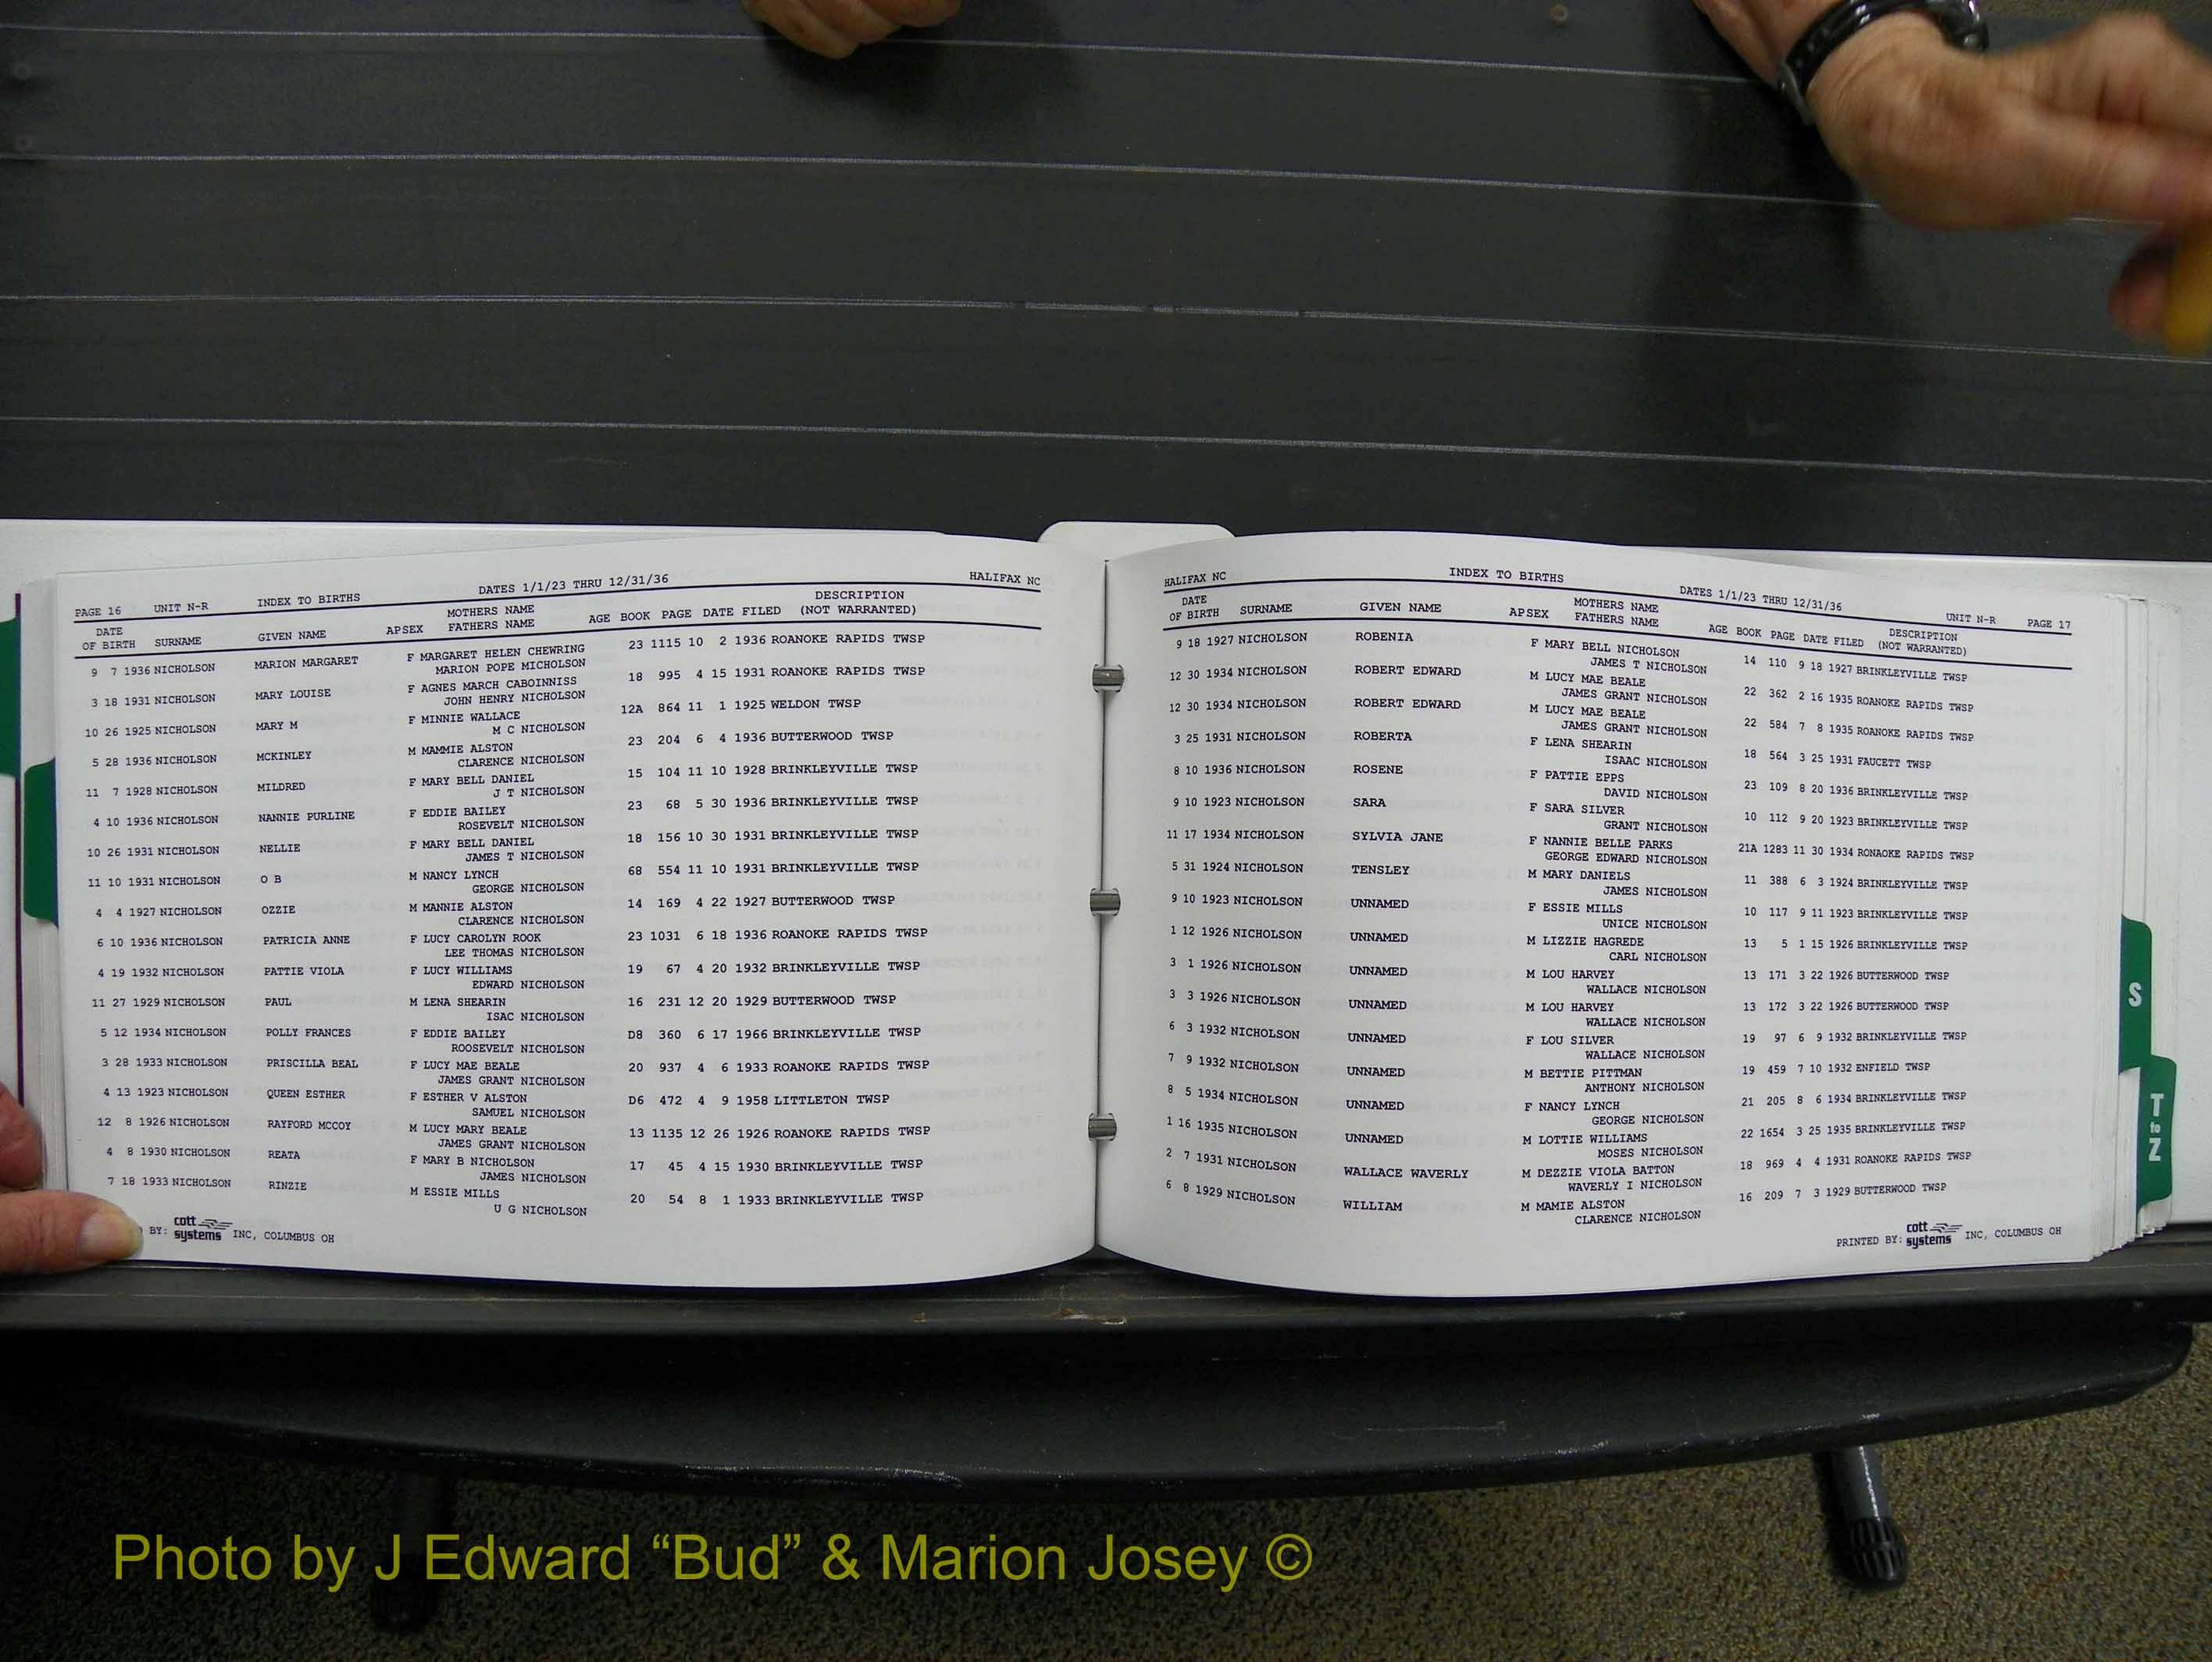 PAGE 16 UNIT N-R INDEX TO BIRTHS DATES 1/1/23 THRU 12/31/36 HALIFAX NC
DATE MOTHERS NAME DESCRIPTION
OF BIRTH SURNAME GIVEN NAME APSEX FATHERS NAME AGE BOOK PAGE DATE FILED (NOT WARRANTED)
9 7 1936 NICHOLSON MARION MARGARET F MARGARET HELEN CHEWRING 23 1115 10 2 1936 ROANOKE RAPIDS TWSP
MARION POPE MICHOLSON
3 18 1931 NICHOLSON MARY LOUISE F AGNES MARCH CABOINNISS 18 995 4 15 1931 ROANOKE RAPIDS TWSP
JOHN HENRY NICHOLSON
10 26 1925 NICHOLSON MARY M F MINNIE WALLACE 12A 864 11 1 1925 WELDON TWSP
M C NICHOLSON
5 28 1936 NICHOLSON MCKINLEY M MAMMIE ALSTON 23 204 6 4 1936 BUTTERWOOD TWSP
CLARENCE NICHOLSON
11 7 1928 NICHOLSON MILDRED F MARY BELL DANIEL 15 104 11 10 1928 BRINKLEYVILLE TWSP
J T NICHOLSON
4 10 1936 NICHOLSON NANNIE PURLINE F EDDIE BAILEY 23 68 5 30 1936 BRINKLEYVILLE TWSP
ROSEVELT NICHOLSON
10 26 1931 NICHOLSON NELLIE F MARY BELL DANIEL 18 156 10 30 1931 BRINKLEYVILLE TWSP
JAMES T NICHOLSON
11 10 1931 NICHOLSON O B M NANCY LYNCH 68 554 11 10 1931 BRINKLEYVILLE TWSP
GEORGE NICHOLSON
4 4 1927 NICHOLSON OZZIE M MANNIE ALSTON 14 169 4 22 1927 BUTTERWOOD TWSP
CLARENCE NICHOLSON
6 10 1936 NICHOLSON PATRICIA ANNE F LUCY CAROLYN ROOK 23 1031 6 18 1936 ROANOKE RAPIDS TWSP
LEE THOMAS NICHOLSON
4 19 1932 NICHOLSON PATTIE VIOLA F LUCY WILLIAMS 19 67 4 20 1932 BRINKLEYVILLE TWSP
EDWARD NICHOLSON
11 27 1929 NICHOLSON PAUL M LENA SHEARIN 16 231 12 20 1929 BUTTERWOOD TWSP
ISAC NICHOLSON
5 12 1934 NICHOLSON POLLY FRANCES F EDDIE BAILEY D8 360 6 17 1966 BRINKLEYVILLE TWSP
ROOSEVELT NICHOLSON
3 28 1933 NICHOLSON PRISCILLA BEAL F LUCY MAE BEALE 20 937 4 6 1933 ROANOKE RAPIDS TWSP
JAMES GRANT NICHOLSON
4 13 1923 NICHOLSON QUEEN ESTHER F ESTHER V ALSTON D6 472 4 9 1958 LITTLETON TWSP
SAMUEL NICHOLSON
12 8 1926 NICHOLSON RAYFORD MCCOY M LUCY MARY BEALE 13 1135 12 26 1926 ROANOKE RAPIDS TWSP
JAMES GRANT NICHOLSON
4 8 1930 NICHOLSON REATA F MARY B NICHOLSON 17 45 4 15 1930 BRINKLEYVILLE TWSP
JAMES NICHOLSON
7 18 1933 NICHOLSON RINZIE M ESSIE MILLS 20 54 8 1 1933 BRINKLEYVILLE TWSP
U G NICHOLSON
BY: cott systems INC, COLUMBUS OH
HALIFAX NC INDEX TO BIRTHS DATES 1/1/23 THRU 12/31/36 UNIT N-R PAGE 17
DATE MOTHERS NAME DESCRIPTION
OF BIRTH SURNAME GIVEN NAME APSEX FATHERS NAME AGE BOOK PAGE DATE FILED (NOT WARRANTED)
9 18 1927 NICHOLSON ROBENIA F MARY BELL NICHOLSON 14 110 9 18 1927 BRINKLEYVILLE TWSP
JAMES T NICHOLSON
12 30 1934 NICHOLSON ROBERT EDWARD M LUCY MAE BEALE 22 362 2 16 1935 ROANOKE RAPIDS TWSP
JAMES GRANT NICHOLSON
12 30 1934 NICHOLSON ROBERT EDWARD M LUCY MAE BEALE 22 584 7 8 1935 ROANOKE RAPIDS TWSP
JAMES GRANT NICHOLSON
3 25 1931 NICHOLSON ROBERTA F LENA SHEARIN 18 564 3 25 1931 FAUCETT TWSP
ISAAC NICHOLSON
8 10 1936 NICHOLSON ROSENE F PATTIE EPPS 23 109 8 20 1936 BRINKLEYVILLE TWSP
DAVID NICHOLSON
9 10 1923 NICHOLSON SARA F SARA SILVER 10 112 9 20 1923 BRINKLEYVILLE TWSP
GRANT NICHOLSON
11 17 1934 NICHOLSON SYLVIA JANE F NANNIE BELLE PARKS 21A 1283 11 30 1934 RONAOKE RAPIDS TWSP
GEORGE EDWARD NICHOLSON
5 31 1924 NICHOLSON TENSLEY M MARY DANIELS 11 388 6 3 1924 BRINKLEYVILLE TWSP
JAMES NICHOLSON
9 10 1923 NICHOLSON UNNAMED F ESSIE MILLS 10 117 9 11 1923 BRINKLEYVILLE TWSP
UNICE NICHOLSON
1 12 1926 NICHOLSON UNNAMED M LIZZIE HAGREDE 13 5 1 15 1926 BRINKLEYVILLE TWSP
CARL NICHOLSON
3 1 1926 NICHOLSON UNNAMED M LOU HARVEY 13 171 3 22 1926 BUTTERWOOD TWSP
WALLACE NICHOLSON
3 3 1926 NICHOLSON UNNAMED M LOU HARVEY 13 172 3 22 1926 BUTTERWOOD TWSP
WALLACE NICHOLSON
6 3 1932 NICHOLSON UNNAMED F LOU SILVER 19 97 6 9 1932 BRINKLEYVILLE TWSP
WALLACE NICHOLSON
7 9 1932 NICHOLSON UNNAMED M BETTIE PITTMAN 19 459 7 10 1932 ENFIELD TWSP
ANTHONY NICHOLSON
8 5 1934 NICHOLSON UNNAMED F NANCY LYNCH 21 205 8 6 1934 BRINKLEYVILLE TWSP
GEORGE NICHOLSON
1 16 1935 NICHOLSON UNNAMED M LOTTIE WILLIAMS 22 1654 3 25 1935 BRINKLEYVILLE TWSP
MOSES NICHOLSON
2 7 1931 NICHOLSON WALLACE WAVERLY M DEZZIE VIOLA BATTON 18 969 4 4 1931 ROANOKE RAPIDS TWSP
WAVERLY I NICHOLSON
6 8 1929 NICHOLSON WILLIAM M MAMIE ALSTON 16 209 7 3 1929 BUTTERWOOD TWSP
CLARENCE NICHOLSON
PRINTED BY: cott systems INC, COLUMBUS OH
S
T
to
Z
Photo by J Edward “Bud” & Marion Josey ©